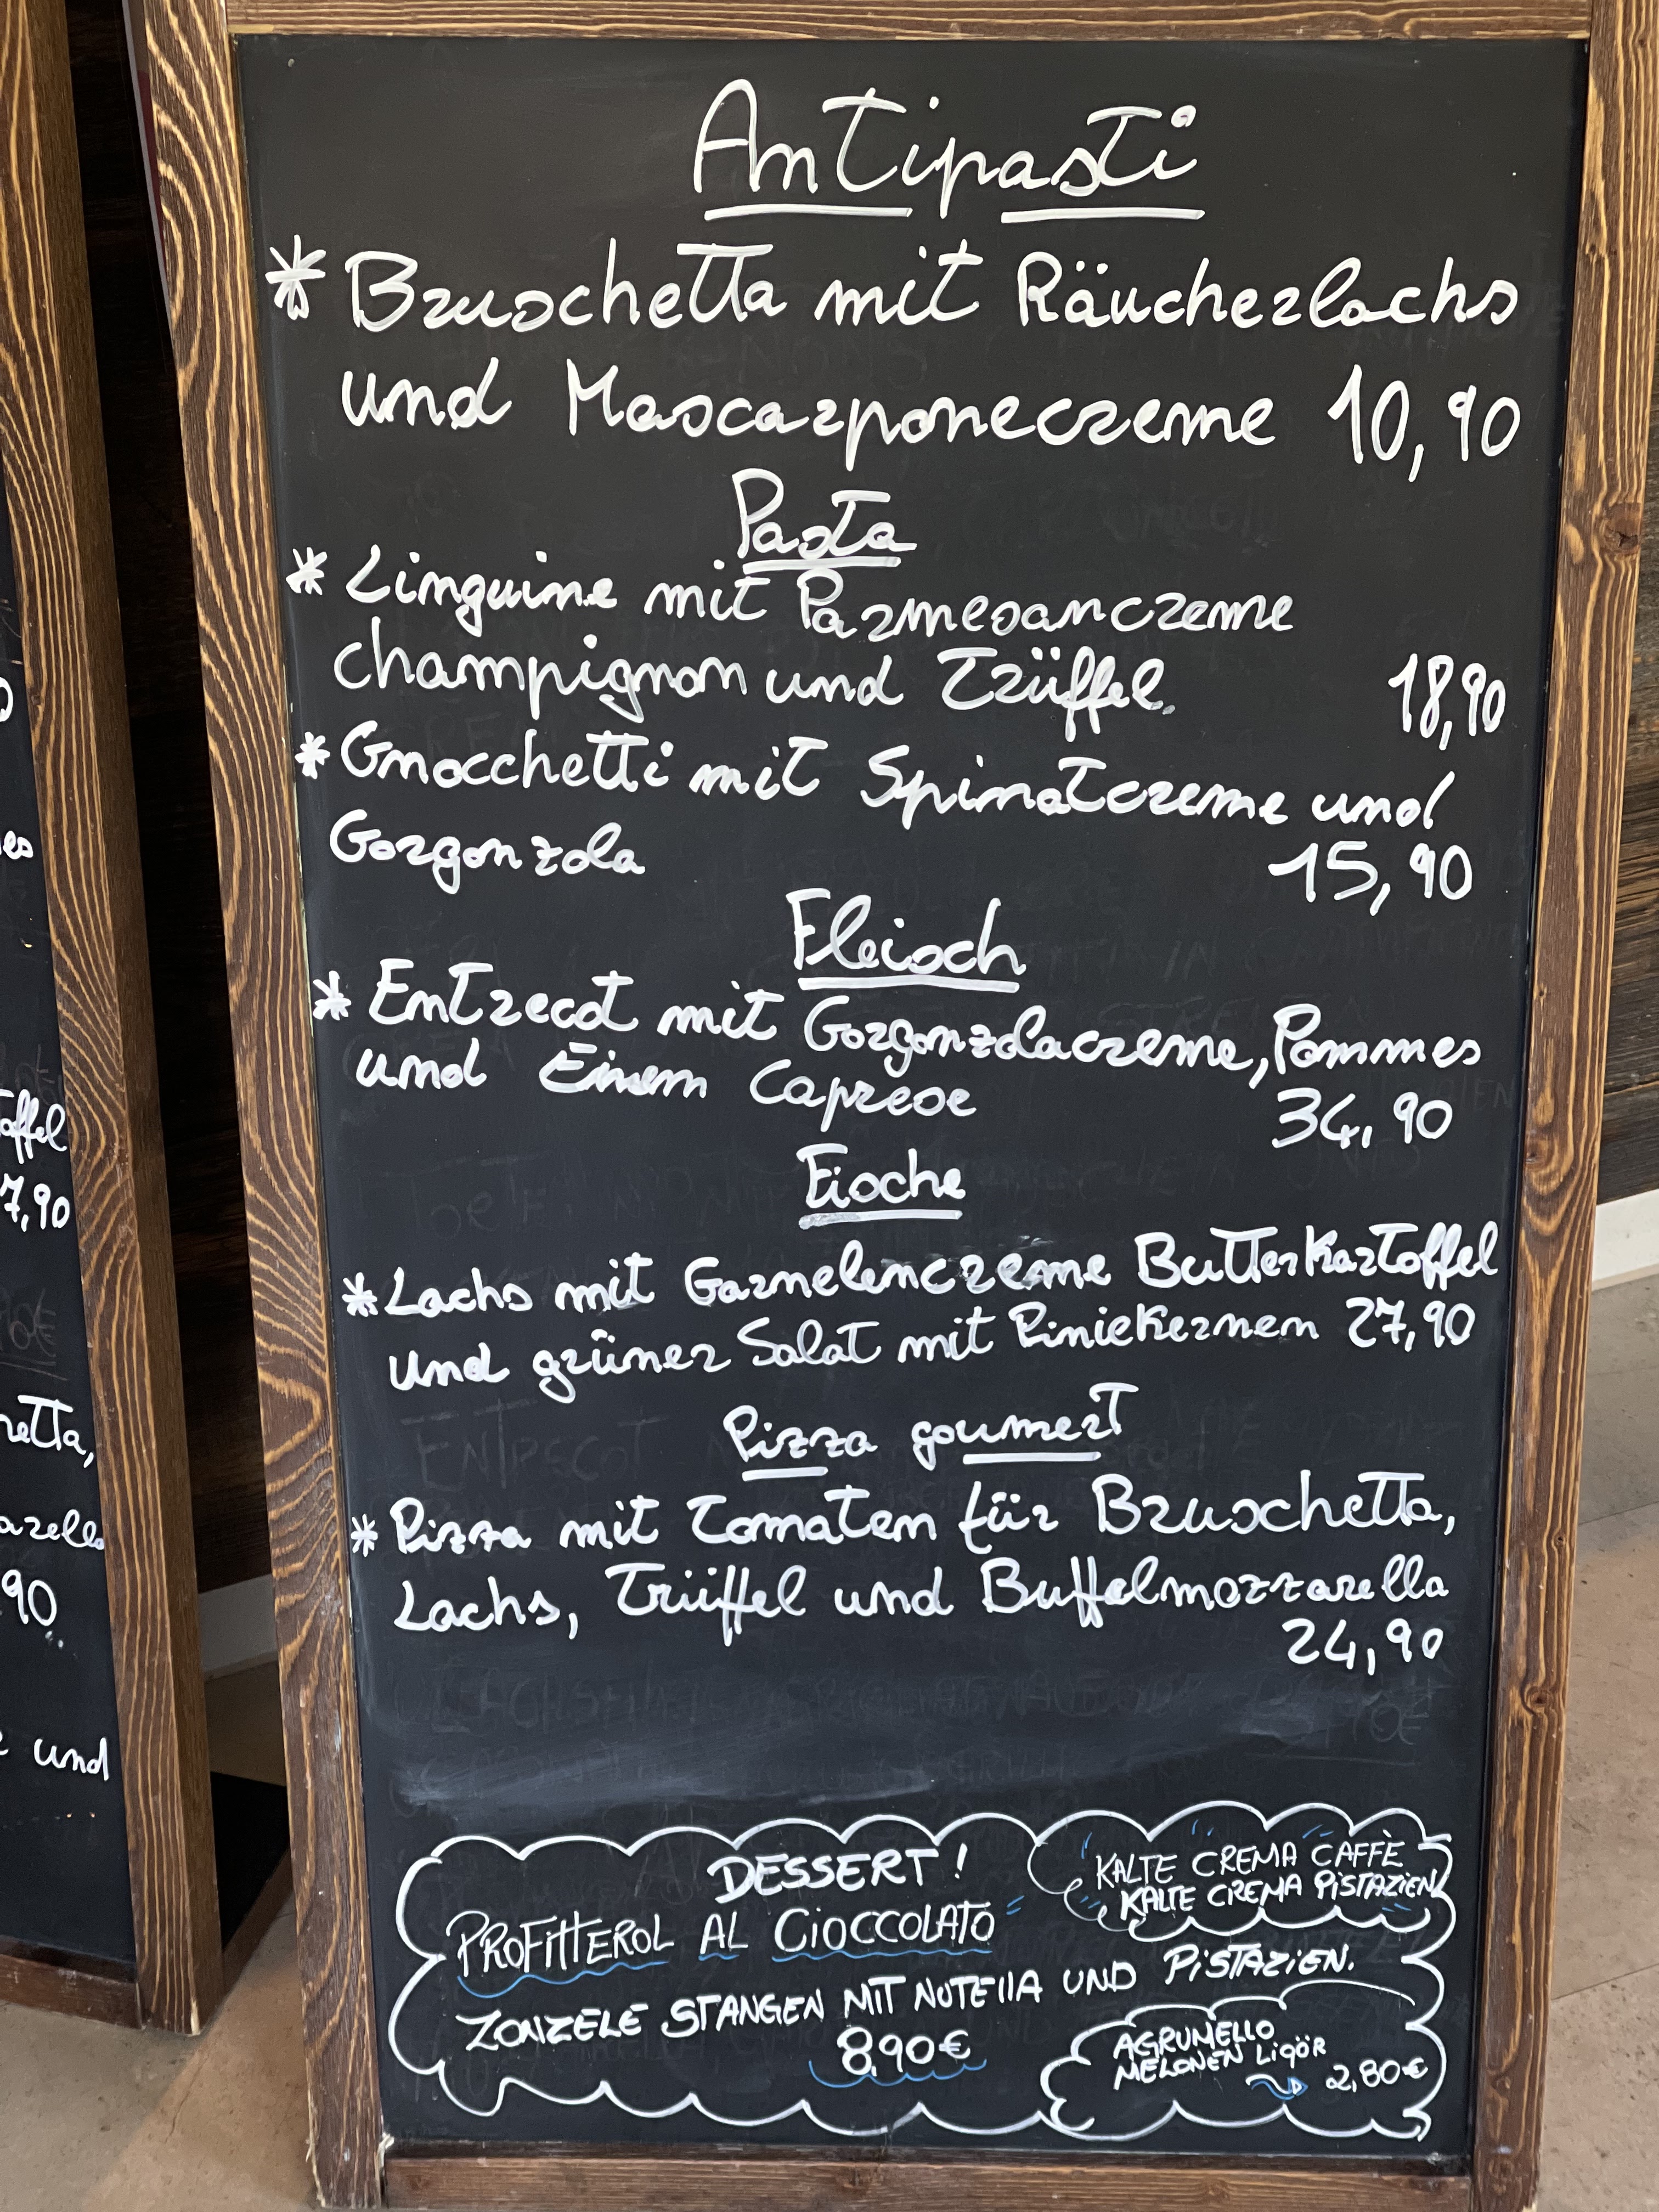 Antipasti
* Bruschetta mit Räucherlachs
und Mascarponecreme 10,90
Pasta
* Linguine mit Parmesancreme
champignon und Trüffel. 18,90
* Gnocchetti mit Spinatcreme und
Gorgonzola 15,90
Fleisch
* Entrecot mit Gorgonzolacreme, Pommes
und Einem Caprese 34,90
Fische
* Lachs mit Garnelencreme Butterkartoffel
und grüner Salat mit Piniekernen 27,90
Pizza goumert
* Pizza mit Tomaten für Bruschetta,
Lachs, Trüffel und Buffelmozzarella
24,90
DESSERT!
KALTE CREMA CAFFÈ
KALTE CREMA PISTAZIEN
PROFITTEROL AL CIOCCOLATO
ZONZELE STANGEN MIT NUTELLA UND PISTAZIEN.
8,90€
AGRUMELLO
MELONEN LIQÖR
2,80€
offel
7,90
etta,
arella
90
und